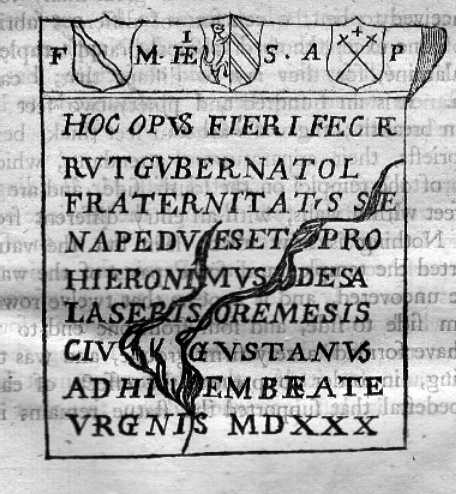 F M · IE S · A P
HOC OPVS FIERI FECE
RVT GVBERNATOL
FRATERNITATIS SE
NAPEDV ESET PRO
HIERONIMVS DESA
LASERIS OREMESIS
CIV K GVSTANVS
AD HI EMBREATE
VRGNIS MDXXX